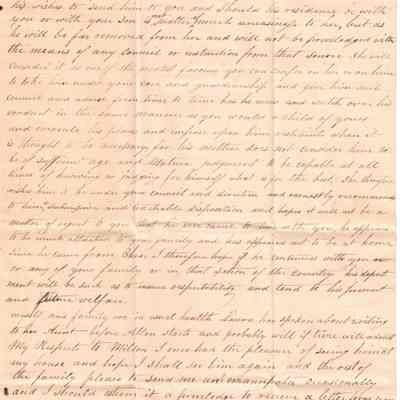 his wishes to send him to you and should his residence be with
you or with your Son it not matter much uneasiness to her, but as
he will be far removed from her and will not be provided with
the means of any council or instruction from that source She will
consider it as one of the greatest favours you can confer on her or on him
to take him under your care and guardianship and give him such
council and advice from time to time has he needs and watch over his
conduct in the same manner as you would a child of yours
and execute his plans and impose upon him restraints when it
is thought to be necessary for his mother does not consider him to
be of sufficient age and Mature judgement to be capable at all
times of knowing or judging for himself what is for the best, She therefore
wishes him to be under your council and direction and earnestly recommends
to him and teachable disposition and hopes it will not be a
matter of regret to you that he ever came to live with you, he appears
to be much attached to your family and does appears not to be at home
since he came from I therefore hope if he continues with you or
or any of your family or in that section of the country his deport
ment will be such as to insure respectability and tend to his present
and future welfare
myself and family are in usual health has spoken about writing
to her Aunt before starts and probably will if time will admit
My Respects to Milton I once had the pleasure of seeing him at
my house and hope I shall see him again and the rest of
the family please to send me occasionally
and I should esteem it a privilege to receive a letter from you